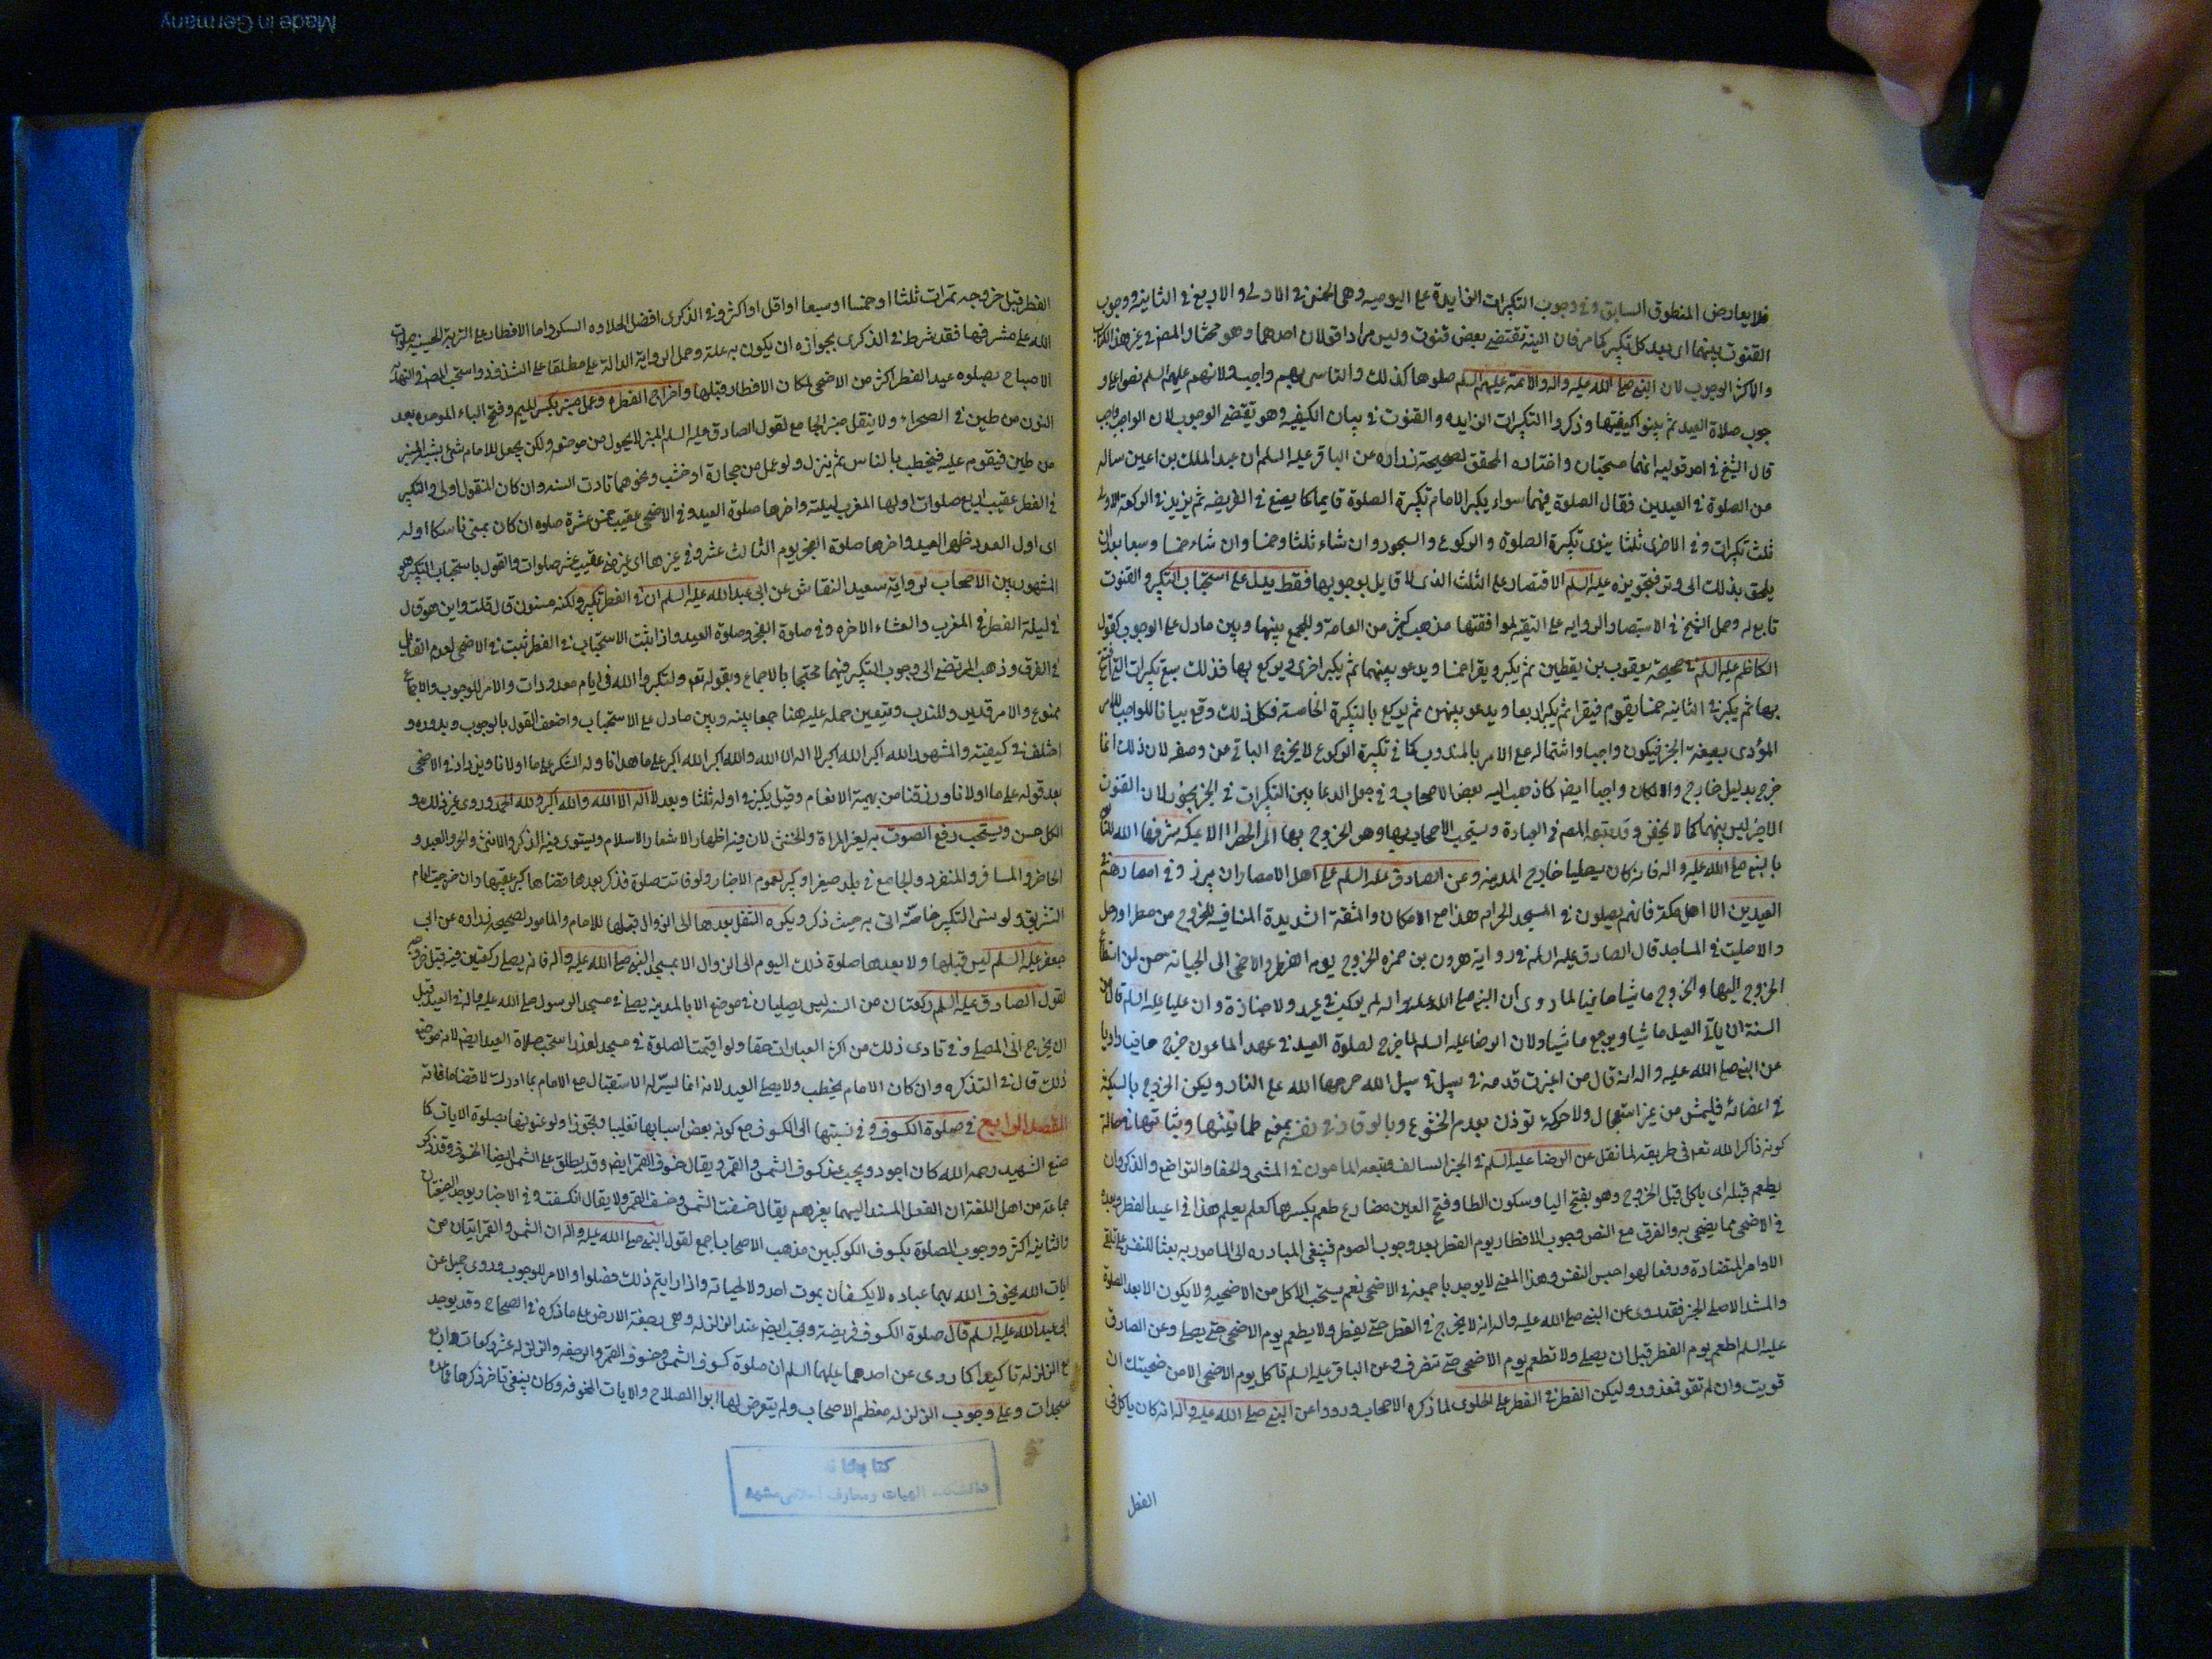 فلا يعارض المنطوق السابق وفي وجوب التكبيرات الزايدة على اليوميه وهي الخمس في الاولى والاربع في الثانيه ووجوب
القنوت بينهما اى بعد كل تكبير كما مر فان البينه تقتضى بعض قنوت وليس مرادا قولان احدهما وهو مختار المصنف في غير هذا الكتاب
والاكثر الوجوب لان النبى صلى الله عليه واله والائمة عليهم السلم صلوها كذلك والتاسى بهم واجب ولانهم عليهم السلم نصوا على و
جوب صلاة العيد ثم بينوا كيفيتها وذكروا التكبيرات الزايده والقنوت في بيان الكيفيه وهو تقتضى الوجوب لان الواجب واجب
قال الشيخ في احد قوليه انهما مستحبتان واختاره المحقق لصحيحة زراره عن الباقر عليه السلم ان عبد الملك بن اعين ساله
عن الصلوة في العيدين فقال الصلوة فيهما سواء يكبر الامام تكبيرة الصلوة قايما كما يصنع في الفريضه ثم يزيد في الركعة الاولى
ثلث تكبيرات وفي الاخرى ثلثا سوى تكبيرة الصلوة والركوع والسجود وان شاء ثلثا وخمسا وان شاء خمسا وسبعا بعد ان
يلحق بذلك الى وتر فتجويزه عليه السلم الاقتصار على الثلث الذى لا قايل بوجوبها فقط يدل على استحباب التكبير والقنوت
تابع له وحمل الشيخ في الاستبصار الروايه على التقيه لموافقتها مذهب كثير من العامة وللجمع بينها وبين ما دل على الوجوب كقول
الكاظم عليه السلم في صحيحة يعقوب بن يقطين ثم يكبر ويقرا خمسا ويدعو بينهما ثم يكبر اخرى ويركع بها فذلك سبع تكبيرات التى افتتح
بها ثم يكبر في الثانيه خمسا يقوم فيقرا ثم يكبر اربعا ويدعو بينهن ثم يركع بالتكبيرة الخامسة فكل ذلك وقع بيانا للواجب للامر
المؤدى بصيغة الخبر فيكون واجبا واشتماله مع الامر بالمندوب كما في تكبيرة الركوع لا يخرج الباقى من وصفه لان ذلك انما
خرج بدليل خارج والا لكان واجبا ايضا كما ذهب اليه بعض الاصحاب وفي جعل الدعا بين التكبيرات في الخبر تجوز لان القنوت
الاخير ليس بينهما كما لا يخفى وقد تبعه المصنف في العبادة ويستحب الاصحار بها وهو الخروج بها الى الصحراء الا بمكه شرفها الله للتاسى
بالنبى صلى الله عليه واله فانه كان يصليها خارج المدينه وعن الصادق عليه السلم على اهل الامصار ان يبرزوا في امصارهم في
العيدين الا اهل مكة فانهم يصلون في المسجد الحرام هذا مع الامكان والمشقة الشديدة المنافيه للخروج من مطر او وحل
والا صليت في المساجد قال الصادق عليه السلم في رواية هرون بن حمزه الخروج يوم الفطر والاضحى الى الجبانه حسن لمن استطاع
الخروج اليها والخروج ماشيا حافيا لما روى ان النبى صلى الله عليه واله لم يركب في عيد ولا جنازة وان عليا عليه السلم قال من
السنة ان ياتى العيد ماشيا ويرجع ماشيا ولان الرضا عليه السلم لما خرج لصلوة العيد في عهد المامون خرج حافيا وروى
عن النبى صلى الله عليه واله انه قال من اغبرت قدمه في سبيل الله حرمها الله على النار وليكن الخروج بالسكينه
في اعضائه فليمش من غير استعجال ولا حركة توذن بعدم الخشوع وبالوقار في نفسه بمعنى طمانينتها وثباتها في حالة
كونه ذاكرا لله تعم في طريقه لما نقل عن الرضا عليه السلم في الخبر السالف وتبعه المامون في المشى والحفا والتواضع والذكر وان
يطعم قبله اى ياكل قبل الخروج وهو بفتح اليا وسكون الطا وفتح العين مضارع طعم بكسرها كعلم يعلم هذا في اعيد الفطر وبعده
في الاضحى مما يضحى به والفرق مع النص وجوب الافطار يوم الفطر بعد وجوب الصوم فينبغى المبادره الى المامور به بعثا للنفس على تلقى
الاوامر المتضادة ودفعا لهواجس النفس وهذا المعنى لا يوجد باجمعه في الاضحى نعم يستحب الاكل من الاضحيه ولا يكون الا بعد الصلوة
والمستند الاصلى الخبر فقد روى عن النبى صلى الله عليه واله انه لا يخرج في الفطر حتى يفطر ولا يطعم يوم الاضحى حتى يصلى وعن الصادق
عليه السلم اطعم يوم الفطر قبل ان يصلى ولا تطعم يوم الاضحى حتى تنصرف وعن الباقر عليه السلم تاكل يوم الاضحى الا من ضحيتك ان
قويت وان لم تقو فمعذور وليكن الفطر في الفطر على الحلوى لما ذكره الاصحاب وروا عن النبى صلى الله عليه واله انه كان ياكل في
الفطر
الفطر قبل خروجه تمرات ثلثا او خمسا او سبعا او اقل او اكثر وفي الذكرى افضل الحلاوه السكر واما الافطار على التربة الحسينيه صلوات
الله على مشرفها فقد شرط في الذكرى بجوازه ان يكون به علة وحمل الرواية الدالة على مطلقا على الشذوذ واستحب المصنف في النهايه
الاصباح بصلوه عيد الفطر اكثر من الاضحى لمكان الافطار قبلها واخراج الفطره وعمل منبر بكسر الميم وفتح الباء الموحده بعد
النون من طين في الصحراء ولا ينقل منبر الجامع لقول الصادق عليه السلم المنبر لا يحول من موضعه ولكن يجعل للامام شئ يشبه المنبر
من طين فيقوم عليه فيخطب بالناس ثم ينزل ولو عمل من حجارة او خشب ونحوهما تادت السنه وان كان المنقول اولى والتكبير
في الفطر عقيب اربع صلوات اولها المغرب ليلته واخرها صلوة العيد وفي الاضحى عقيب خمس عشرة صلوه ان كان بمنى ناسكا اوله
اى اول العدد ظهر العيد واخرها صلوة الصبح يوم الثالث عشر وفي غيرها اى غير منى عقيب عشر صلوات والقول باستحباب التكبير هو
المشهور بين الاصحاب لرواية سعيد النقاش عن ابى عبد الله عليه السلم ان في الفطر تكبير ولكنه مسنون قال قلت واين هو قال
في ليلة الفطر في المغرب والعشاء الاخره وفي صلوة الفجر وصلوة العيد واذا ثبت الاستحباب في الفطر ثبت في الاضحى لعدم القايل
في الفرق وذهب المرتضى الى وجوب التكبير فيهما محتجا بالاجماع وبقوله تعم ولتكبروا الله في ايام معدودات والامر للوجوب والاجماع
ممنوع والامر قد يرد للندب ويتعين حمله عليه هنا جمعا بينه وبين ما دل على الاستحباب واضعف القول بالوجوب وبدوره و
اختلف في كيفيته والمشهور الله اكبر الله اكبر لا اله الا الله والله اكبر الله اكبر على ما هدانا وله الشكر على ما اولانا ويزداد في الاضحى
بعد قوله على ما اولانا ورزقنا من بهيمة الانعام وقيل يكبر في اوله ثلثا وبعد لا اله الا الله والله اكبر ولله الحمد وروى غير ذلك و
الكل حسن ويستحب رفع الصوت به لغير المراة والخنثى لان فيه اظهار الاشعار الاسلام ويستوى فيه الذكر والانثى والحر والعبد و
الحاضر والمسافر والمنفرد والجامع في بلد صغير او كبير لعموم الاخبار ولو فاتت صلوة فذكر بعدها قضاها كبر عقيبها وان خرجت ايام
التشريق ولو نسى التكبير خاصة اتى به حيث ذكر ويكره التنفل بعدها الى الزوال وقبلها للامام والماموم لصحيحه زراره عن ابى
جعفر عليه السلم ليس قبلها ولا بعدها صلوة ذلك اليوم الى الزوال الا بمسجد النبى صلى الله عليه واله فانه يصلى ركعتين فيه قبل خروجه
لقول الصادق عليه السلم ركعتان من السنه ليس يصليان في موضع الا بالمدينه يصلى في مسجد الرسول صلى الله عليه واله في العيد قبل
ان يخرج الى المصلى وفي تادى ذلك من اكثر العبارات حقا ولو اقيمت الصلوة في مسجد لعذر استحب صلاة العيد ايضا لانه موضع
ذلك قال في التذكره وان كان الامام يخطب ولا يصلى العيد لانه انما ليس له الاستقبال مع الامام بما ادرك لا قضا ما فاته
المقصد الرابع في صلوة الكسوف وفي نسبتها الى الكسوف مع كونه بعض اسبابها تغليبا وتجوز او لو عنونها بصلوة الايات كما
صنع الشهيد رحمه الله كان اجود ويجب عند كسوف الشمس والقمر ويقال خسوف القمر ايضا وقد يطلق على الشمس ايضا الخسوف وقد ذكر
جماعة من اهل اللغة ان الفعل المسند اليهما بغيرهم يقال خسفت الشمس وخسف القمر ولا يقال انكسفت وفي الاخبار يوجد الصيغتان
والثانيه اكثر ووجوب الصلوة بكسوف الكوكبين مذهب الاصحاب اجمع لقول النبى صلى الله عليه واله ان الشمس والقمر ايتان من
ايات الله يخوف الله بهما عباده لا يكسفان بموت احد ولا لحياته واذا رايتم ذلك فصلوا والامر للوجوب وروى جميل عن
ابى عبد الله عليه السلم قال صلوة الكسوف فريضة وتجب ايضا عند الزلزله وهى رجفة الارض على ما ذكره في الصحاح وقد يوجد
مع الزلزله تاكيدا كما روى عن احدهما عليهما السلم ان صلوة كسوف الشمس وخسوف القمر والرجفه والزلزله عشر ركعات واربع
سجدات وعلى وجوب الزلزله معظم الاصحاب ولم يتعرض لها ابو الصلاح والايات المخوفه وكان ينبغى تاخر ذكرها
كتابخانه
دانشكده الهيات ومعارف اسلامى مشهد
Made in Germany